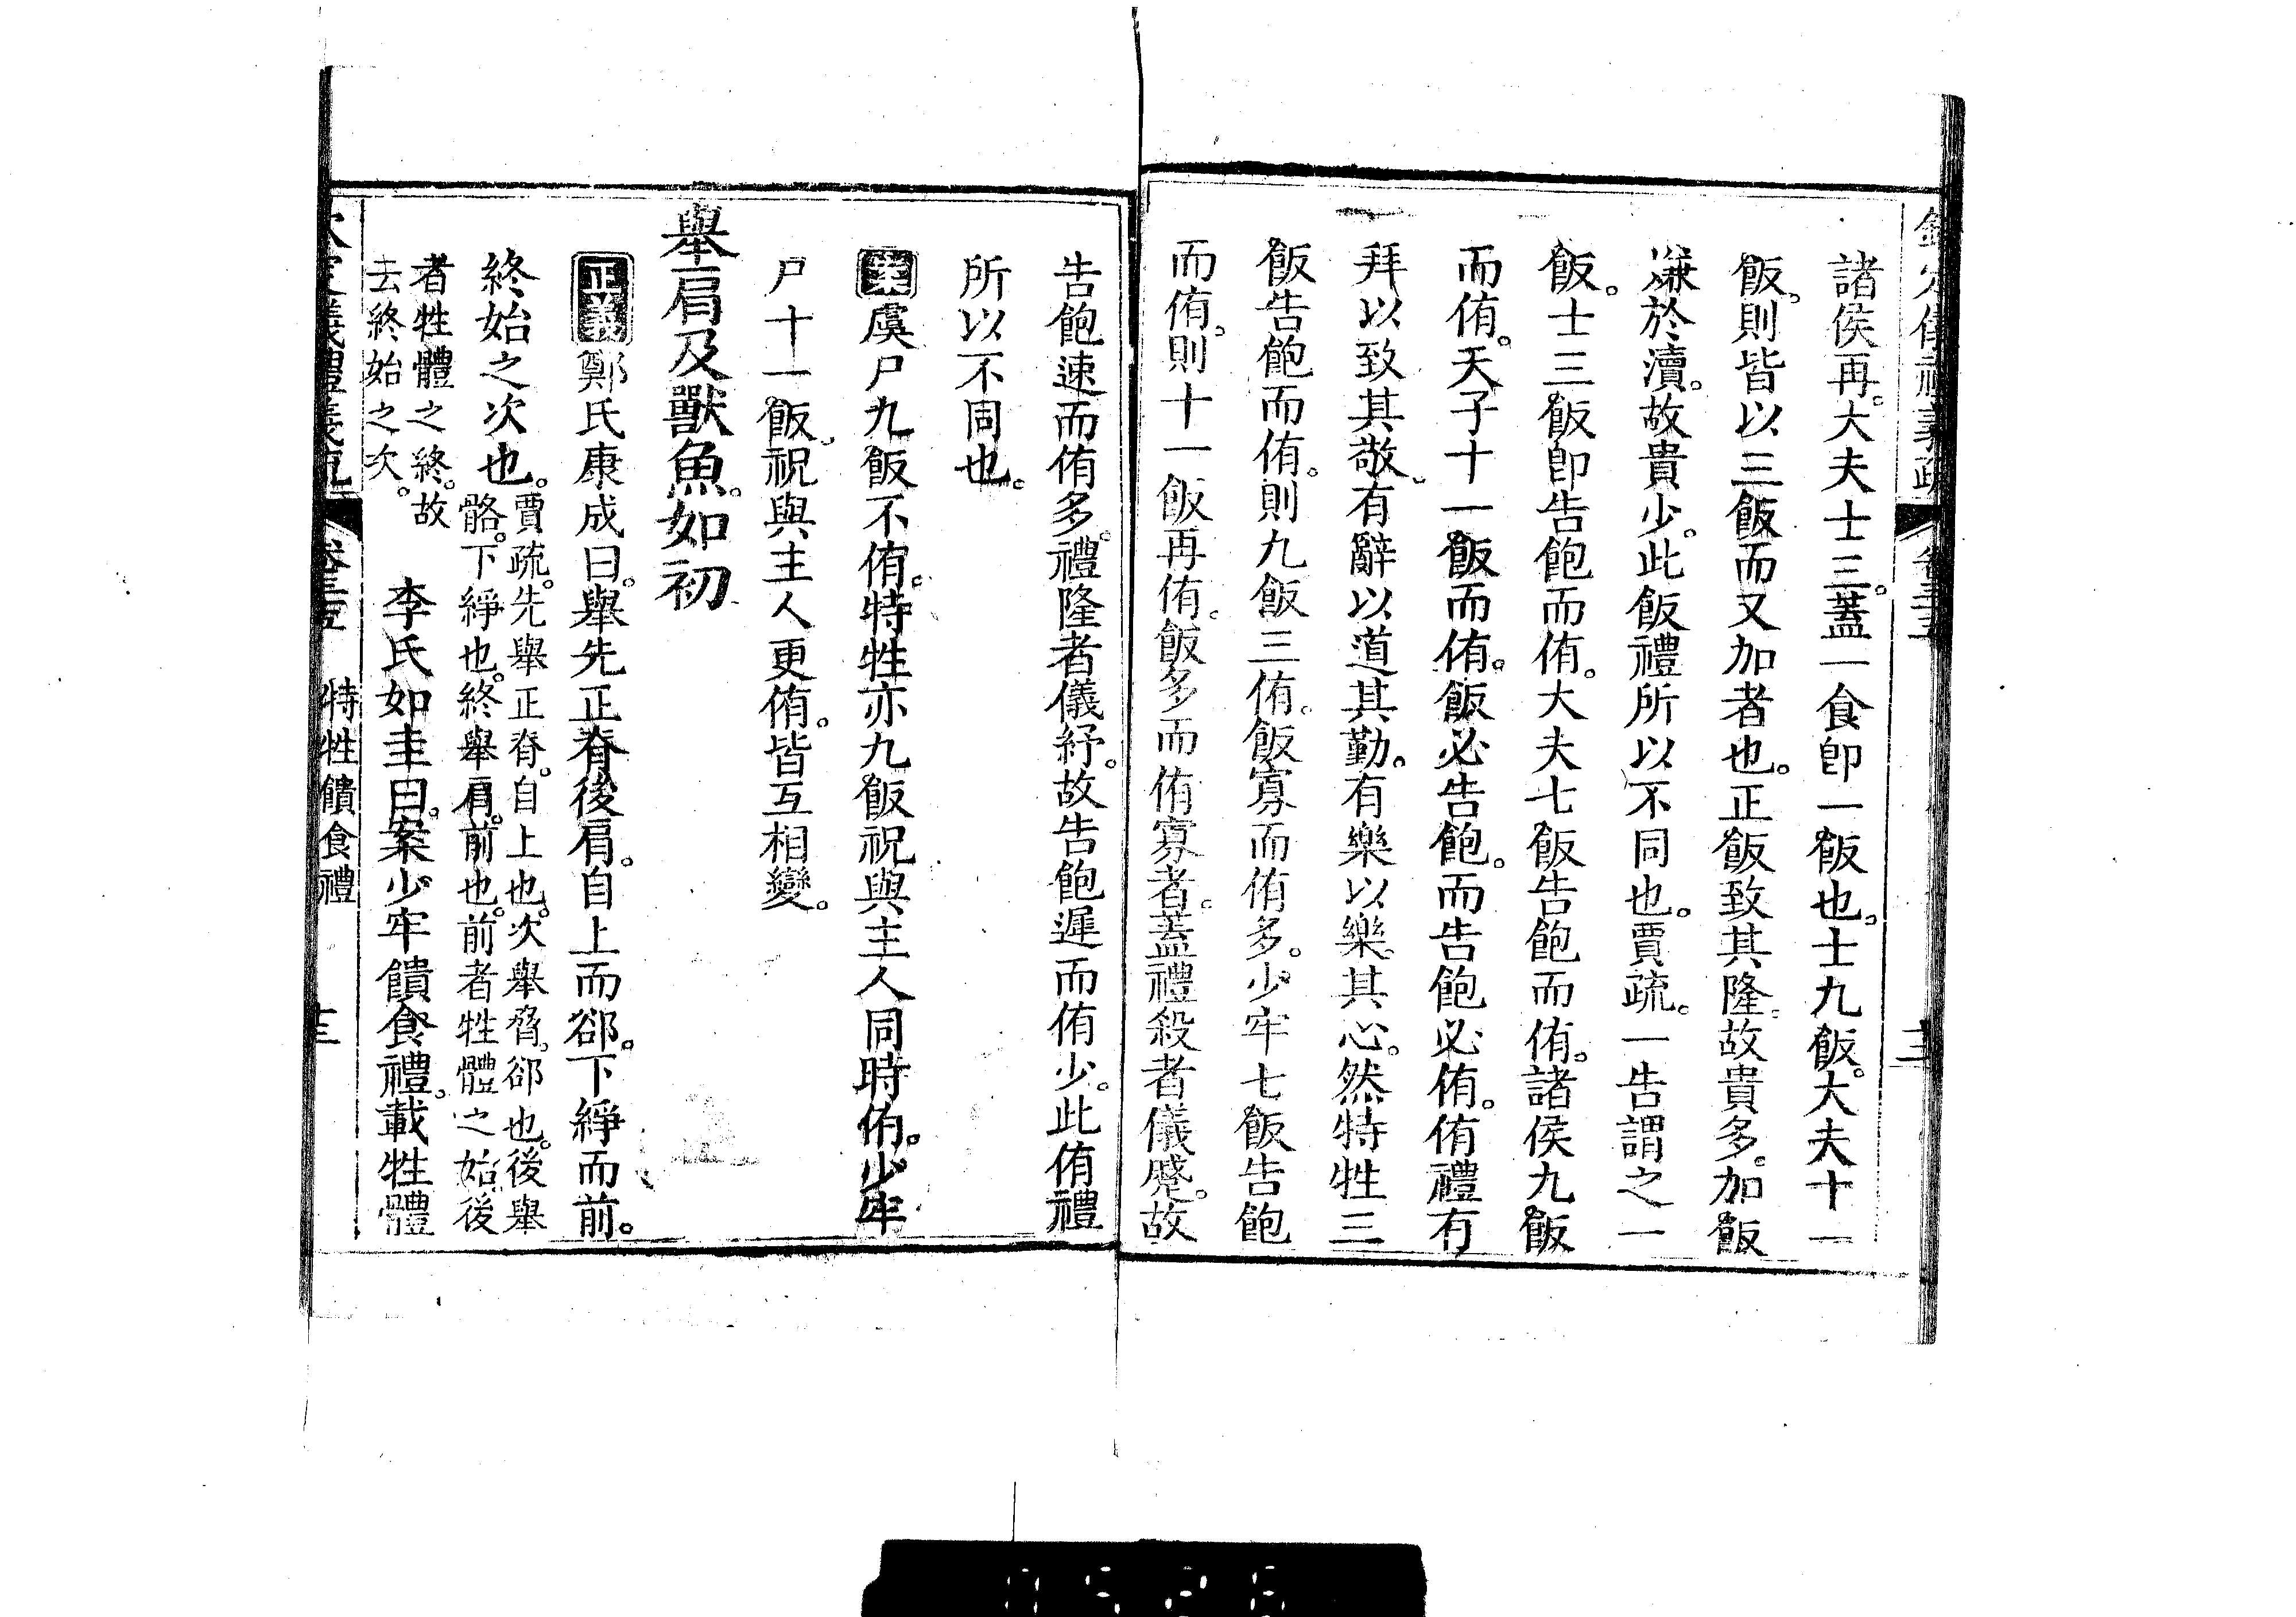 諸侯再。大夫士三。蓋一食卽一飯也。士九飯。大夫十一
飯。則皆以三飯而又加者也。正飯致其隆。故貴多。加飯
嫌於瀆。故貴少。此飯禮所以不同也。賈疏。一告謂之一
飯。士三飯卽告飽而侑。大夫七飯告飽而侑。諸侯九飯
而侑。天子十一飯而侑。飯必告飽。而告飽必侑。侑禮有
拜以致其敬。有辭以道其勤。有樂以樂其心。然特牲三
飯告飽而侑。則九飯三侑。飯寡而侑多。少牢七飯告飽
而侑。則十一飯再侑。飯多而侑寡者。蓋禮殺者儀蹙。故
告飽速而侑多。禮隆者儀紓。故告飽遲而侑少。此侑禮
所以不同也。
案虞尸九飯不侑。特牲亦九飯祝與主人同時侑。少牢
尸十一飯。祝與主人更侑。皆互相變。
舉肩及獸魚。如初
正義鄭氏康成曰。舉先正脊後肩。自上而卻。下綪而前。
終始之次也。賈疏。先舉正脊。自上也。次舉脅。卻也。後舉
骼。下綪也。終舉肩。前也。前者牲體之始後
者牲體之終。故
去終始之次。
李氏如圭曰。案少牢饋食禮。載牲體
卷三十五
特牲饋食禮